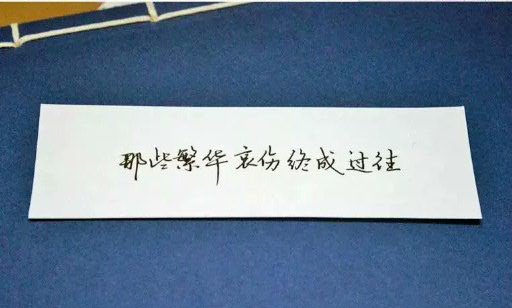 那些繁华哀伤终成过往